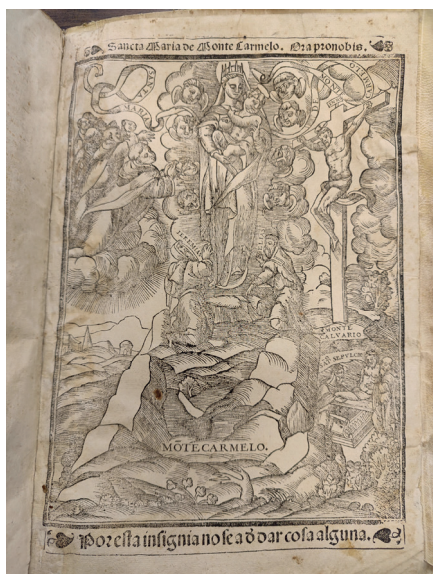 Sancta Maria de Monte Carmelo. Ora pro nobis.
SANTA
MARIA
MONTE
CARMELO
MONTE
CALVARIO
SEPVLCR
MÕTECARMELO.
Por esta insignia no se a d̄ dar cosa alguna.